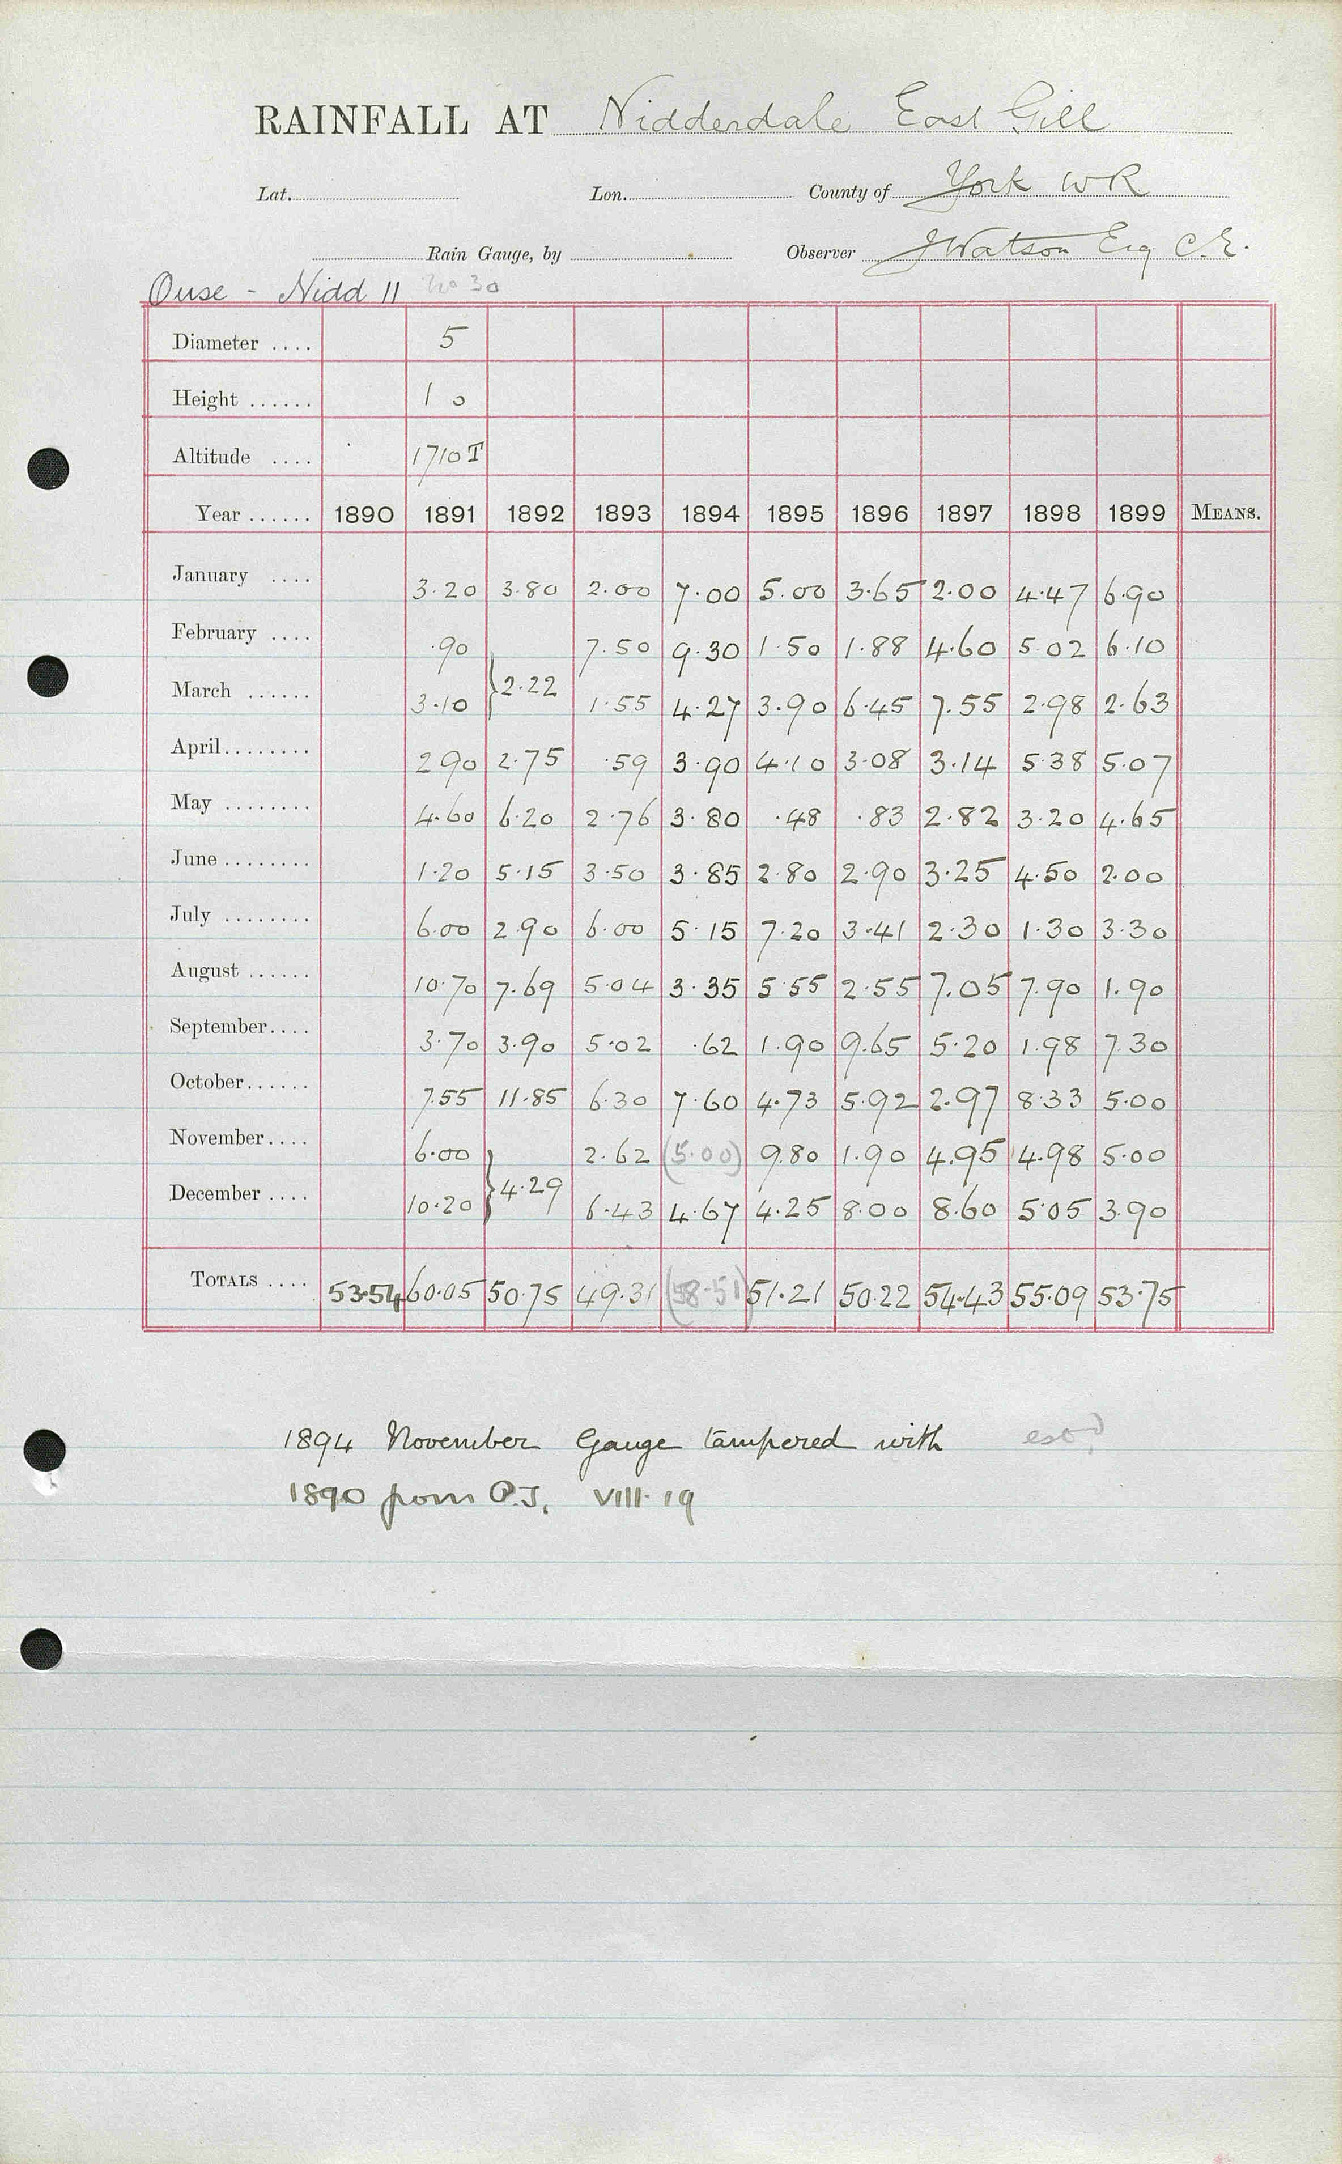 RAINFALL AT Nidderdale East Gill
Lat. Lon. County of York WR
Rain Gauge, by Observer J Watson Esq C.E.
Ouse - Nidd 11 No 30
Diameter .... 5
Height ...... 1 0
Altitude .... 1710 T
Year ...... 1890 1891 1892 1893 1894 1895 1896 1897 1898 1899 MEANS.
January .... 3.20 3.80 2.00 7.00 5.00 3.65 2.00 4.47 6.90
February .... .90 7.50 9.30 1.50 1.88 4.60 5.02 6.10
} 2.22
March ...... 3.10 1.55 4.27 3.90 6.45 7.55 2.98 2.63
April ........ 2.90 2.75 .59 3.90 4.10 3.08 3.14 5.38 5.07
May ........ 4.60 6.20 2.76 3.80 .48 .83 2.82 3.20 4.65
June ........ 1.20 5.15 3.50 3.85 2.80 2.90 3.25 4.50 2.00
July ........ 6.00 2.90 6.00 5.15 7.20 3.41 2.30 1.30 3.30
August ...... 10.70 7.69 5.04 3.35 5.55 2.55 7.05 7.90 1.90
September.... 3.70 3.90 5.02 .62 1.90 9.65 5.20 1.98 7.30
October...... 7.55 11.85 6.30 7.60 4.73 5.92 2.97 8.33 5.00
November.... 6.00 2.62 (5.00) 9.80 1.90 4.95 4.98 5.00
} 4.29
December .... 10.20 6.43 4.67 4.25 8.00 8.60 5.05 3.90
TOTALS .... 53.54 60.05 50.75 49.31 (58.51) 51.21 50.22 54.43 55.09 53.75
1894 November Gauge tampered with est?
1890 from P.J. VIII. 19